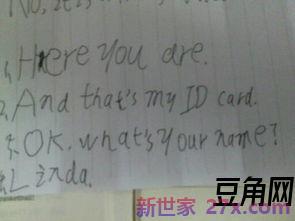 No,
1, Here you are.
2, And that's my ID card.
3, OK. what's your name?
4, Linda.
豆角网
新世家 27x.com